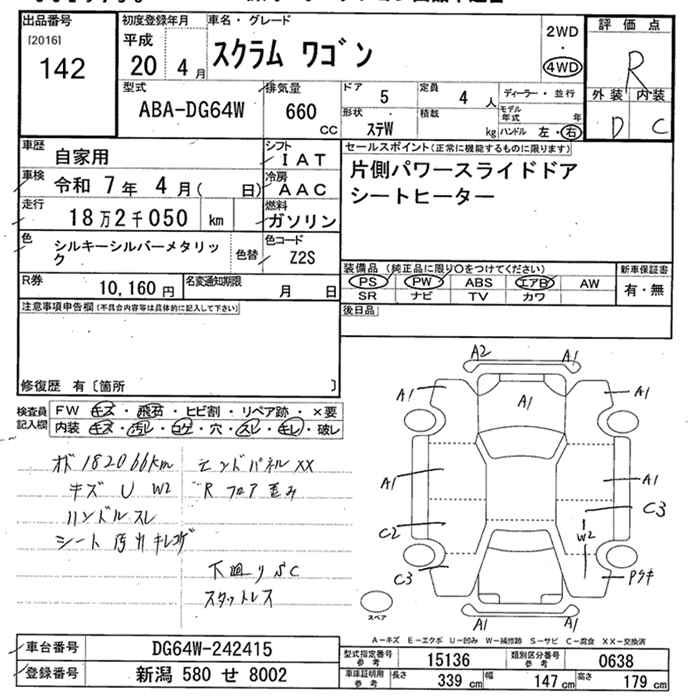 出品番号
[2016]
142
初度登録年月
平成
20 4月
車名・グレード
スクラム ワゴン
2WD
・
4WD
評価点
R
外装 内装
D C
型式
ABA-DG64W
排気量
660 cc
ドア 5
定員 4 人
形状 ステW
積載 kg
ディーラー・並行
モデル年式 年
ハンドル 左・右
車歴 自家用
シフト IAT
車検 令和 7年 4月( 日)
冷房 AAC
走行 18万2千050 km
燃料 ガソリン
色 シルキーシルバーメタリック
色替
色コード Z2S
R券 10,160 円
名変通知期限 月 日
セールスポイント(正常に機能するものに限ります)
片側パワースライドドア
シートヒーター
装備品 (純正品に限り○をつけてください)
新車保証書
PS PW ABS エアB AW
SR ナビ TV カワ
有・無
後日品
注意事項申告欄(不具合内容等は具体的に記入して下さい)
修復歴 有〔箇所 〕
検査員記入欄
FW キズ・飛石・ヒビ割・リペア跡・×要
内装 キズ・汚レ・コゲ・穴・スレ・キレ・破レ
メーター 182066km
エンドパネルXX
キズ U W2
Rフロア歪み
ハンドルスレ
シート汚れキレコゲ
下廻りSC
スタットレス
A2 A1
A1 A1 A1
A1 A1
C3
C2 W2
C3
A1 A1
スペア
A-キズ E-エクボ U-凹み W-補修跡 S-サビ C-腐食 XX-交換済
車台番号 DG64W-242415
登録番号 新潟 580 せ 8002
型式指定番号 参考 15136
類別区分番号 参考 0638
車庫証明用 参考 長さ 339 cm 幅 147 cm 高さ 179 cm